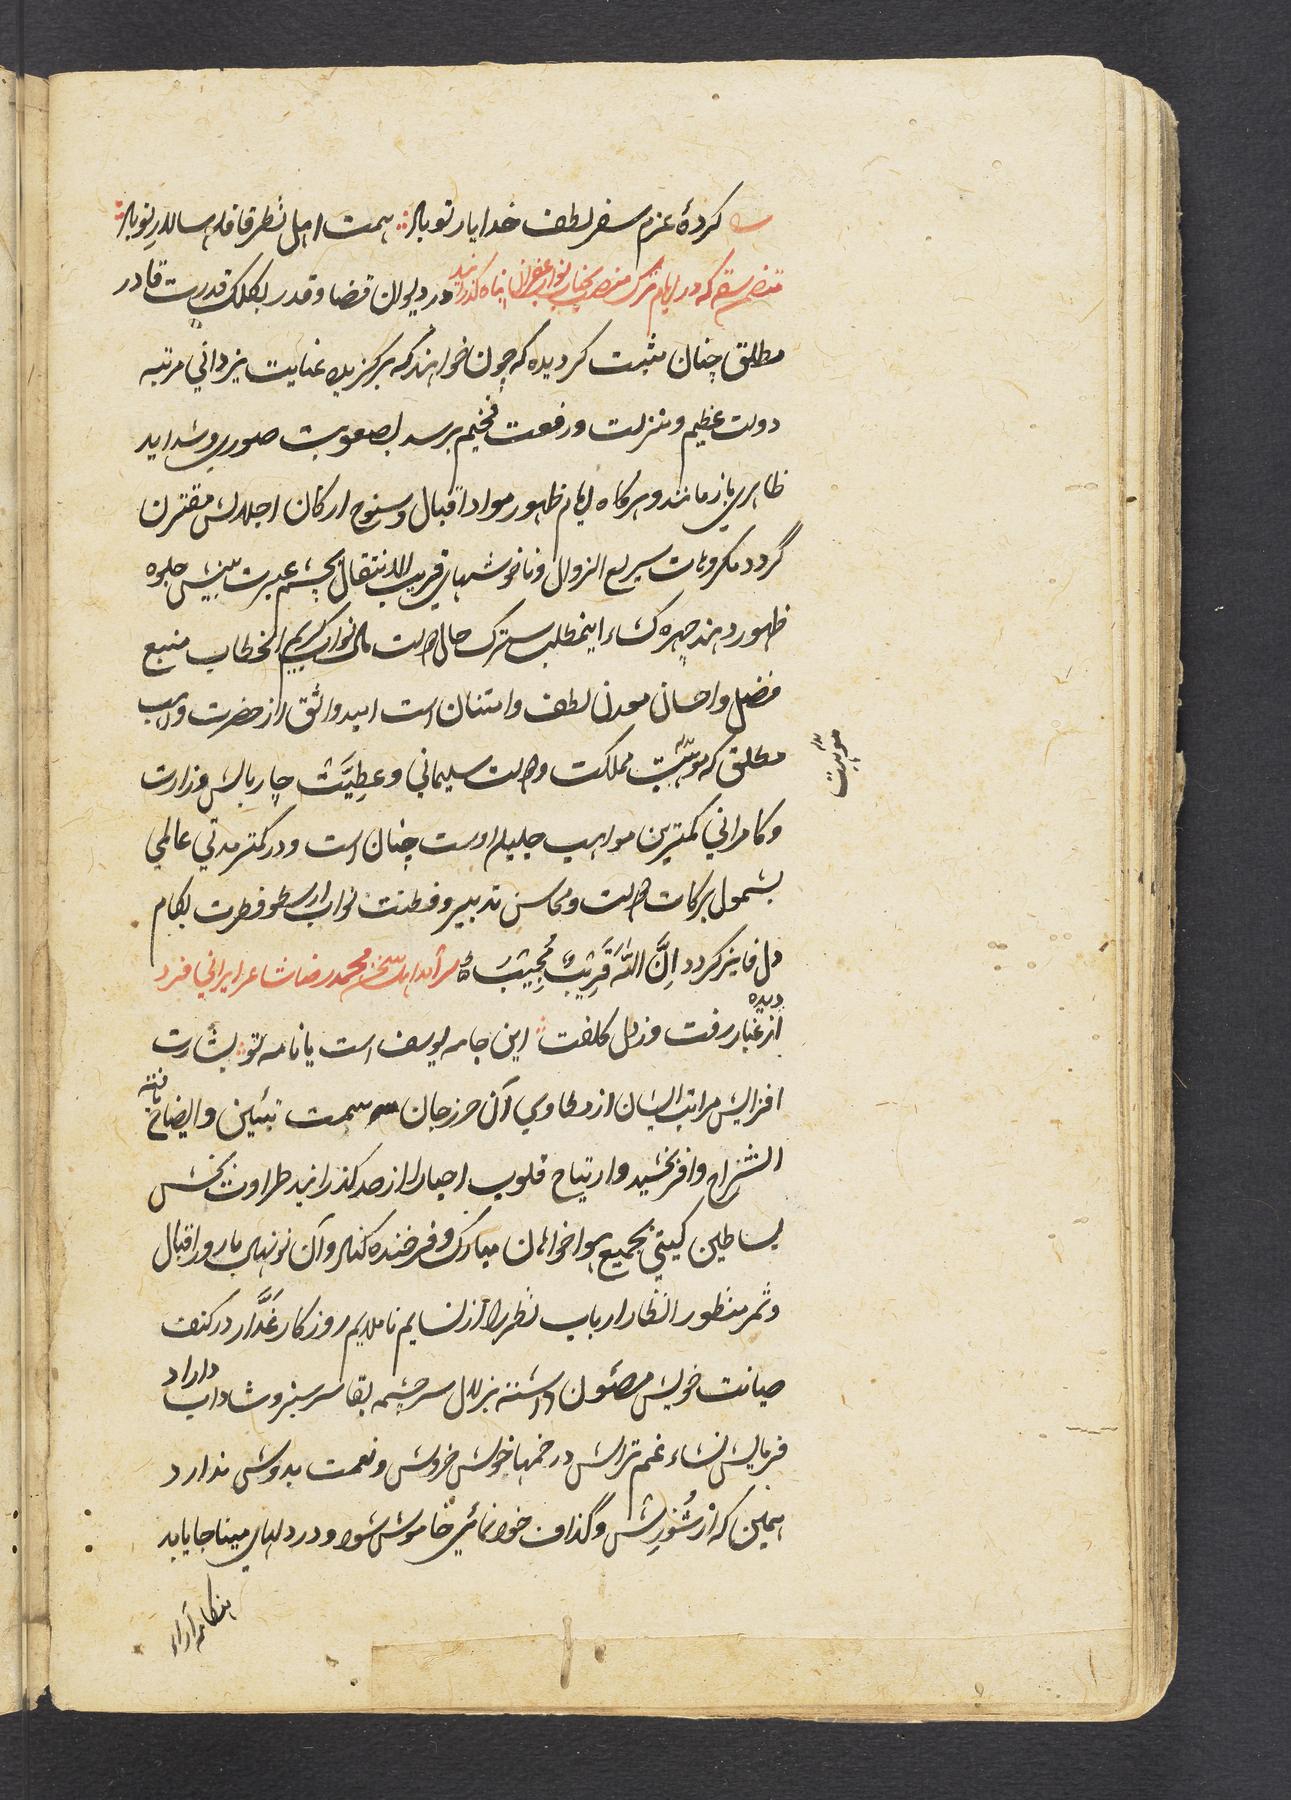 کردهٔ عزم سفر لطف خدا یار تو باد همت اهل نظر قافله سالار تو باد
متضمن رقعه که در ایام ترک منصب بجناب نواب غفران پناه گذرانید در دیوان قضا و قدر بکلک قدرت قادر
مطلق چنان مثبت کردیده که چون خواهند که برگزیدهٔ عنایت یزدانی مرتبه
دولت عظیم و منزلت و رفعت فخیم برسد بصعوبت صوری و شداید
ظاهری باز مانند و هرگاه ایام ظهور مواد اقبال و سنوح ارکان اجلالش مقترن
گردد مکروهات سریع الزوال و ناخوشیهای قریب الانتقال بچشم عبرت بینش جلوه
ظهور دهند چهره کشاء اینمطلب سترک حال نواب کریم الخطاب منبع
فضل و احسان معدن لطف و امتنان است امید واثق از حضرت واهب
مطلق که موهبت مملکت و سلیمانی و عطیت چار بالش وزارت
موهبت
و کامرانی کمترین مواهب جلیله اوست چنان است و در کمتر مدتی عالمی
بشمول برکات و محاسن تدبیر و فطنت نواب ارسطو فطرت بکام
دل فایز کردد اِنَّ اللهَ قَرِیْبٌ مُجِیْبٌ محمد رضا شاعر ایرانی فرد
دیده
از غبار رفت و ز دل کلفت این جامه یوسف است یا نامه تو بشارت
افزایش مراتب ایشان از مطاوی آن حرز جان سمت تبئین و ایضاح یافته
انشراح وافر بخشید و ارتیاح قلوب احبا را از حد گذرانید طراوت بخش
بساطین گیتی بجمیع هوا خواهان مبارک و فرخنده کناد و آن نونهال بارور اقبال
و ثمر منظور انظار ارباب نظر را از نسایم ناملایم روزگار غَدَّار در کنف
صیانت خویش مصئون داشته بزلال سرچشمه بقا سرسبز و شاداب داراد
فرمایش نشاء غم تراش در خمها خوش خروش و نعمت بدوش ندارد
همین که از شُورِش و گذاف خود نمائی خاموش شود و در دلهای مینا جا یابد
هنگامه آراء